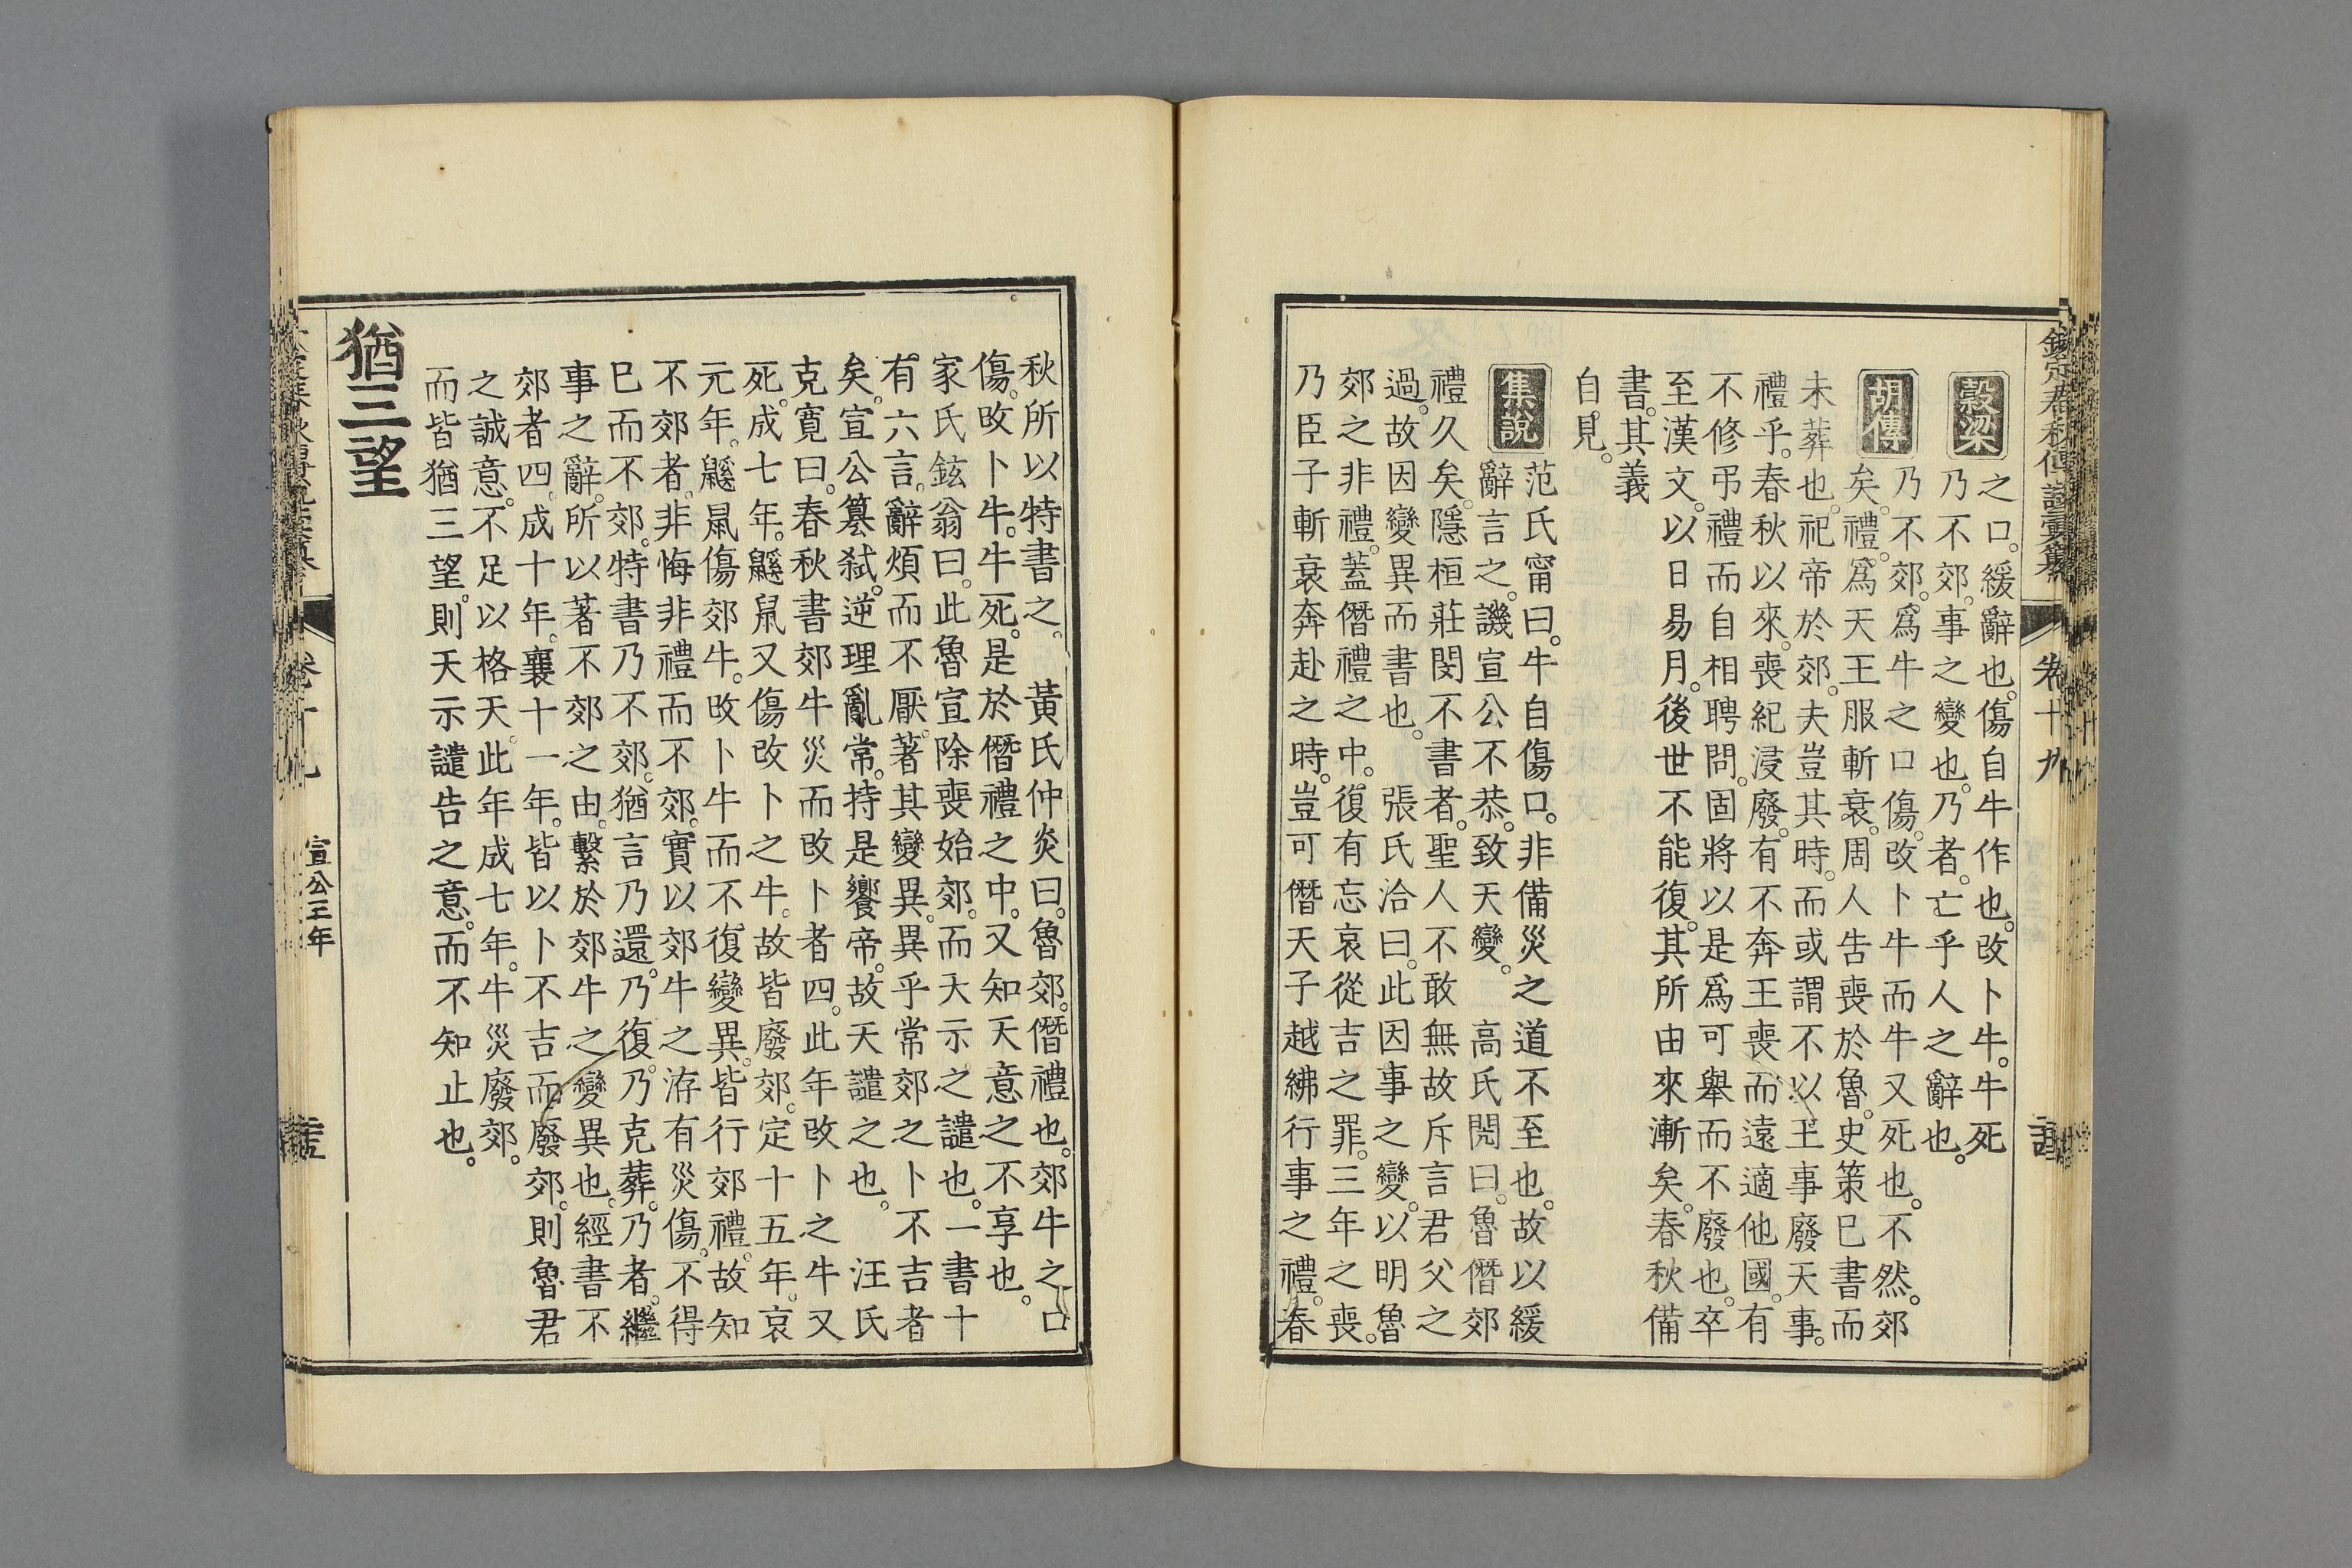 欽定春秋傳說彙纂 卷十九
穀梁 之口。緩辭也。傷自牛作也。改卜牛。牛死
乃不郊。事之變也。乃者。亡乎人之辭也。
胡傳 乃不郊。爲牛之口傷。改卜牛而牛又死也。不然。郊
矣。禮。爲天王服斬衰。周人告喪於魯。史策已書而
未葬也。祀帝於郊。夫豈其時。而或謂不以王事廢天事。
禮乎。春秋以來。喪紀浸廢。有不奔王喪而遠適他國。有
不修弔禮而自相聘問。固將以是爲可舉而不廢也。卒
至漢文。以日易月。後世不能復。其所由來漸矣。春秋備
書。其義
自見。
集說 范氏甯曰。牛自傷口。非備災之道不至也。故以緩
辭言之。譏宣公不恭。致天變。 高氏閌曰。魯僭郊
禮久矣。隱桓莊閔不書者。聖人不敢無故斥言君父之
過。故因變異而書也。 張氏洽曰。此因事之變。以明魯
郊之非禮。蓋僭禮之中。復有忘哀從吉之罪。三年之喪。
乃臣子斬衰奔赴之時。豈可僭天子越紼行事之禮。春
秋所以特書之。 黃氏仲炎曰。魯郊。僭禮也。郊牛之口
傷。改卜牛。牛死。是於僭禮之中。又知天意之不享也。
家氏鉉翁曰。此魯宣除喪始郊。而天示之譴也。一書十
有六言。辭煩而不厭。著其變異。異乎常郊之卜不吉者
矣。宣公簒弒。逆理亂常。持是饗帝。故天譴之也。 汪氏
克寬曰。春秋書郊牛災而改卜者四。此年改卜之牛又
死。成七年。鼷鼠又傷改卜之牛。故皆廢郊。定十五年。哀
元年。鼷鼠傷郊牛。改卜牛而不復變異。皆行郊禮。故知
不郊者。非悔非禮而不郊。實以郊牛之洊有災傷。不得
已而不郊。特書乃不郊。猶言乃還。乃復。乃克葬。乃者。繼
事之辭。所以著不郊之由。繫於郊牛之變異也。經書不
郊者四。成十年。襄十一年。皆以卜不吉而廢郊。則魯君
之誠意。不足以格天。此年成七年。牛災廢郊。
而皆猶三望。則天示譴告之意。而不知止也。
猶三望
卷十九 宣公三年